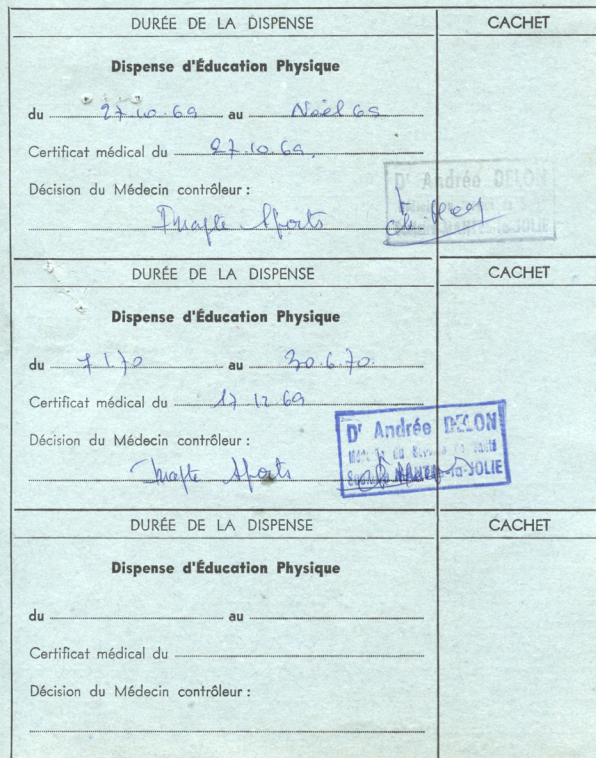 DURÉE DE LA DISPENSE CACHET
Dispense d'Éducation Physique
du 27.10.69 au Noël 69
Certificat médical du 27.10.69.
Décision du Médecin contrôleur :
Inapte Sports
Dr Andrée DELON
DURÉE DE LA DISPENSE CACHET
Dispense d'Éducation Physique
du 7 1.70 au 30.6.70.
Certificat médical du 17 12 69
Décision du Médecin contrôleur :
Inapte Sports
Dr Andrée DELON
Santé
MANTES-la-JOLIE
DURÉE DE LA DISPENSE CACHET
Dispense d'Éducation Physique
du au
Certificat médical du
Décision du Médecin contrôleur :